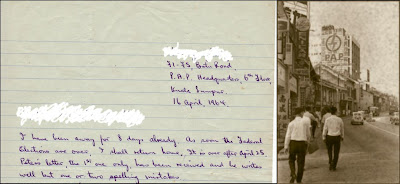 71-75, Batu Road
P.A.P. Headquarters, 6th Floor,
Kuala Lumpur.
16 April, 1964.
I have been away for 8 days already. As soon the Federal
Elections are over, I shall return home. It is one after April 25.
Peter's letter, the 1st one only has been received and he writes
well but one or two spelling mistakes
PAP